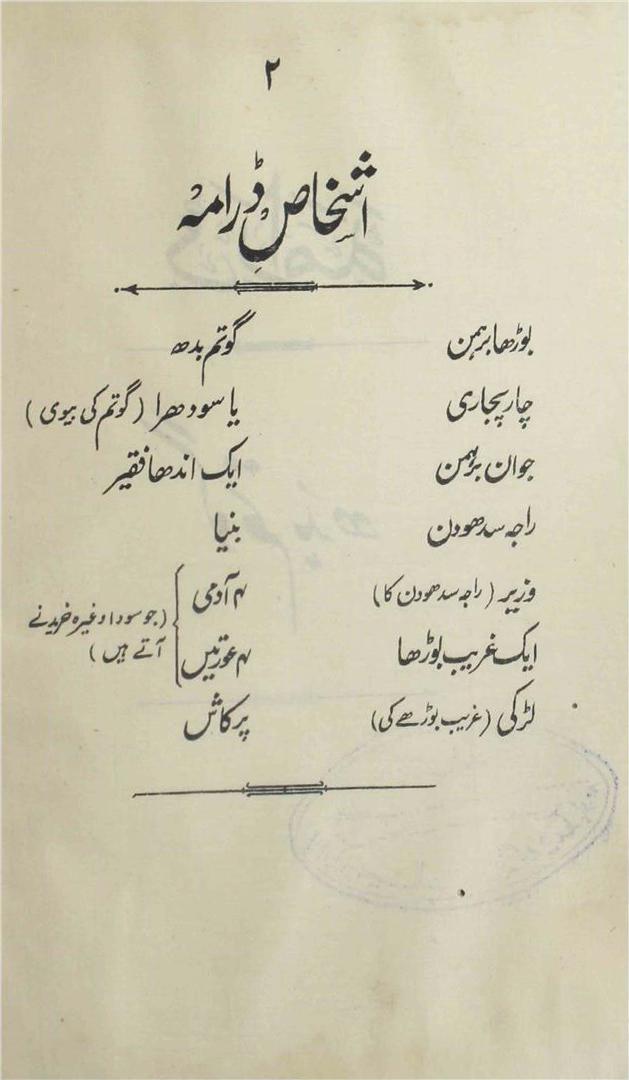 ۲
اشخاصِ ڈرامہ
بوڑھا برہمن
چار پجاری
جوان برہمن
راجہ سدھودن
وزیر (راجہ سدھودن کا)
ایک غریب بوڑھا
لڑکی (غریب بوڑھے کی)
گوتم بدھ
یاسودھرا (گوتم کی بیوی)
ایک اندھا فقیر
بنیا
۴ آدمی
۴ عورتیں
(جو سودا وغیرہ خریدنے
آتے ہیں)
پرکاش